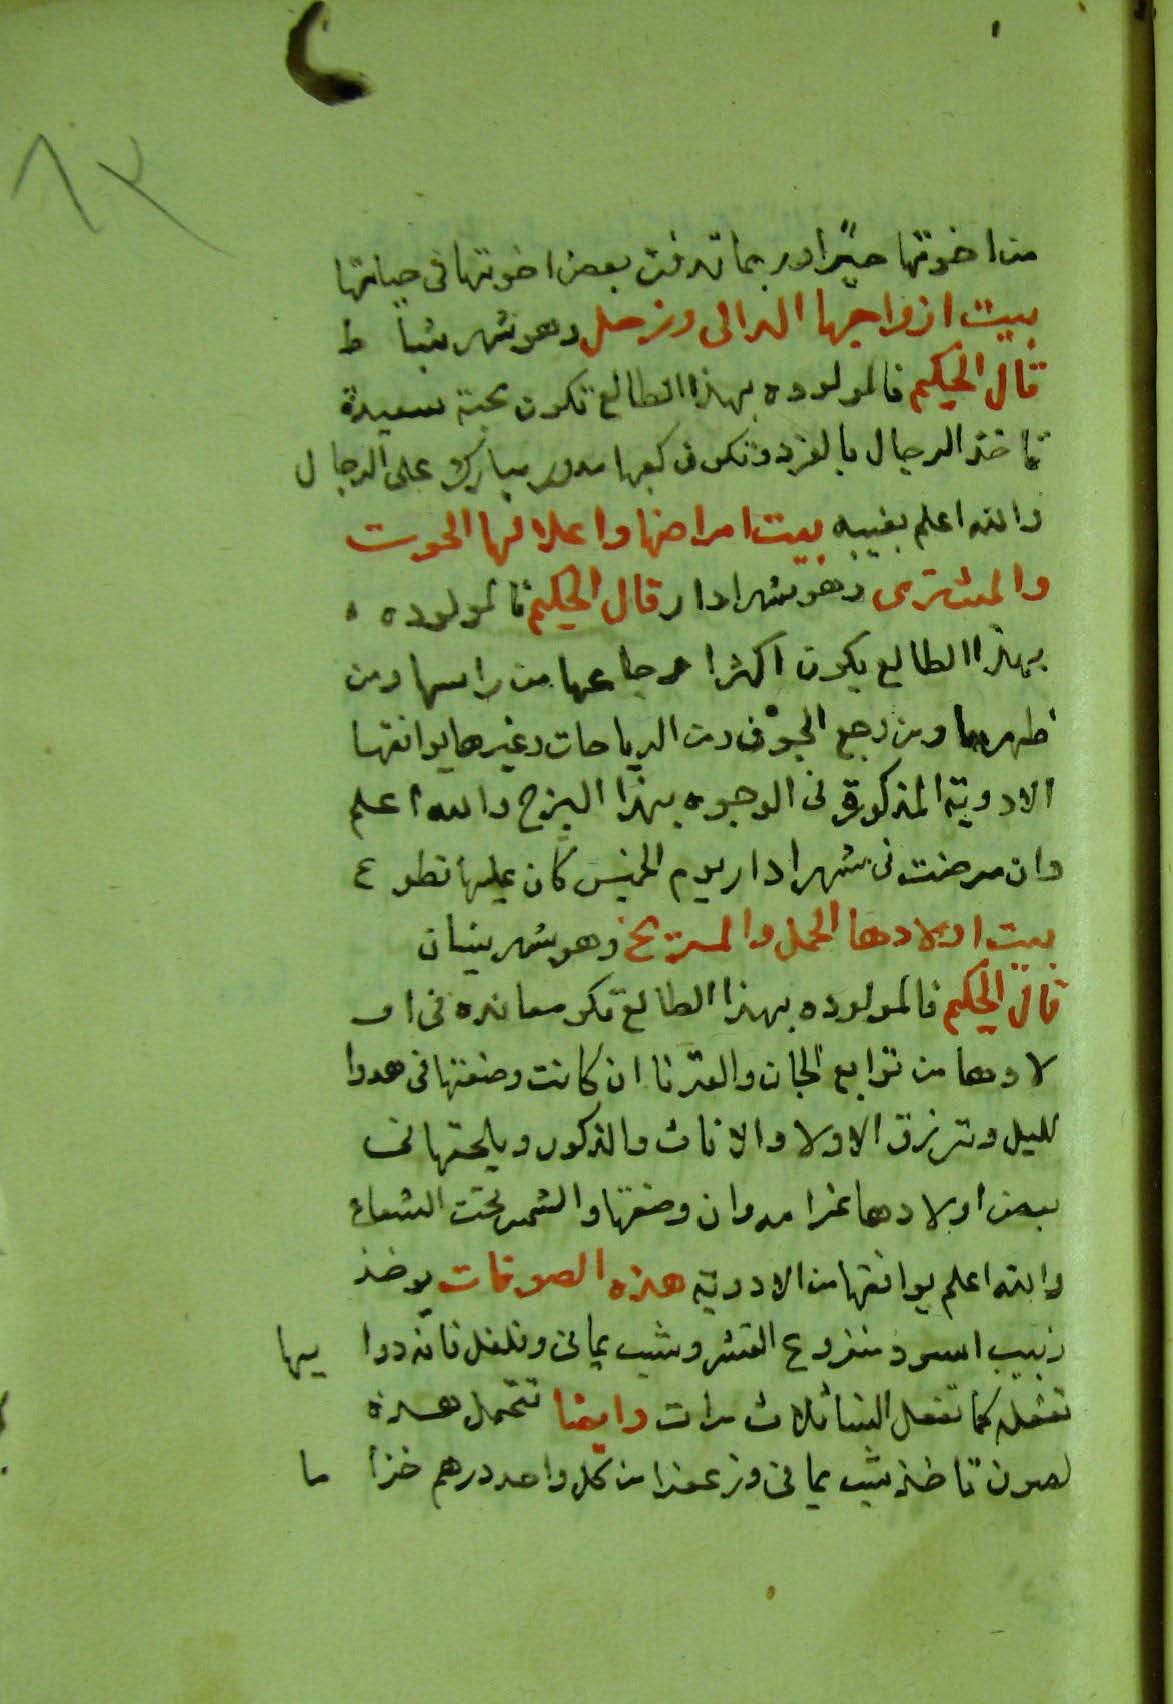 ٨٣
من اخوتها خيرًا وربما تدفن بعض اخوتها في حياتها
بيت ازواجها الدالى وزحل وهو شهر شباط
قال الحكيم فالمولوده بهذا الطالع تكون محبة سعيدة
تاخذ الرجال بالفرد وتكون كعبها مدور مبارك على الرجال
والله اعلم بغيبه بيت امراضها واعلالها الحوت
والمشترى وهو شهر ادار قال الحكيم فالمولوده
بهذا الطالع يكون اكثر اوجاعها من راسها ومن
ظهرها ومن وجع الجوف ومن الرياحات وغيرها يوافقها
الادوية المذكورة فى الوجوه بهذا البرج والله اعلم
وان مرضت فى شهر ادار يوم الخميس كان عليها قطوع
بيت اولادها الحمل والمريخ وهو شهر نيسان
قال الحكيم فالمولوده بهذا الطالع تكو معانده فى او
لادها من توابع الجان والقرنا ان كانت وضعتها فى هدوا
لليل وترزق الاولا والاناث والذكور ويلحقها فى
بعض اولادها غرامه وان وضعتها والشمس تحت الشعاع
والله اعلم يوافقها من الادوية هذه الصوفات يوخذ
زبيب اسود منزوع القشر وشب يمانى وفلفل فانه دوا يبها
تفعله كما تفعل النسا ثلاث مرات وايضا تتحمل هذه
لصوف تاخذ شب يمانى وزعفرا من كل واحد درهم خزا ما